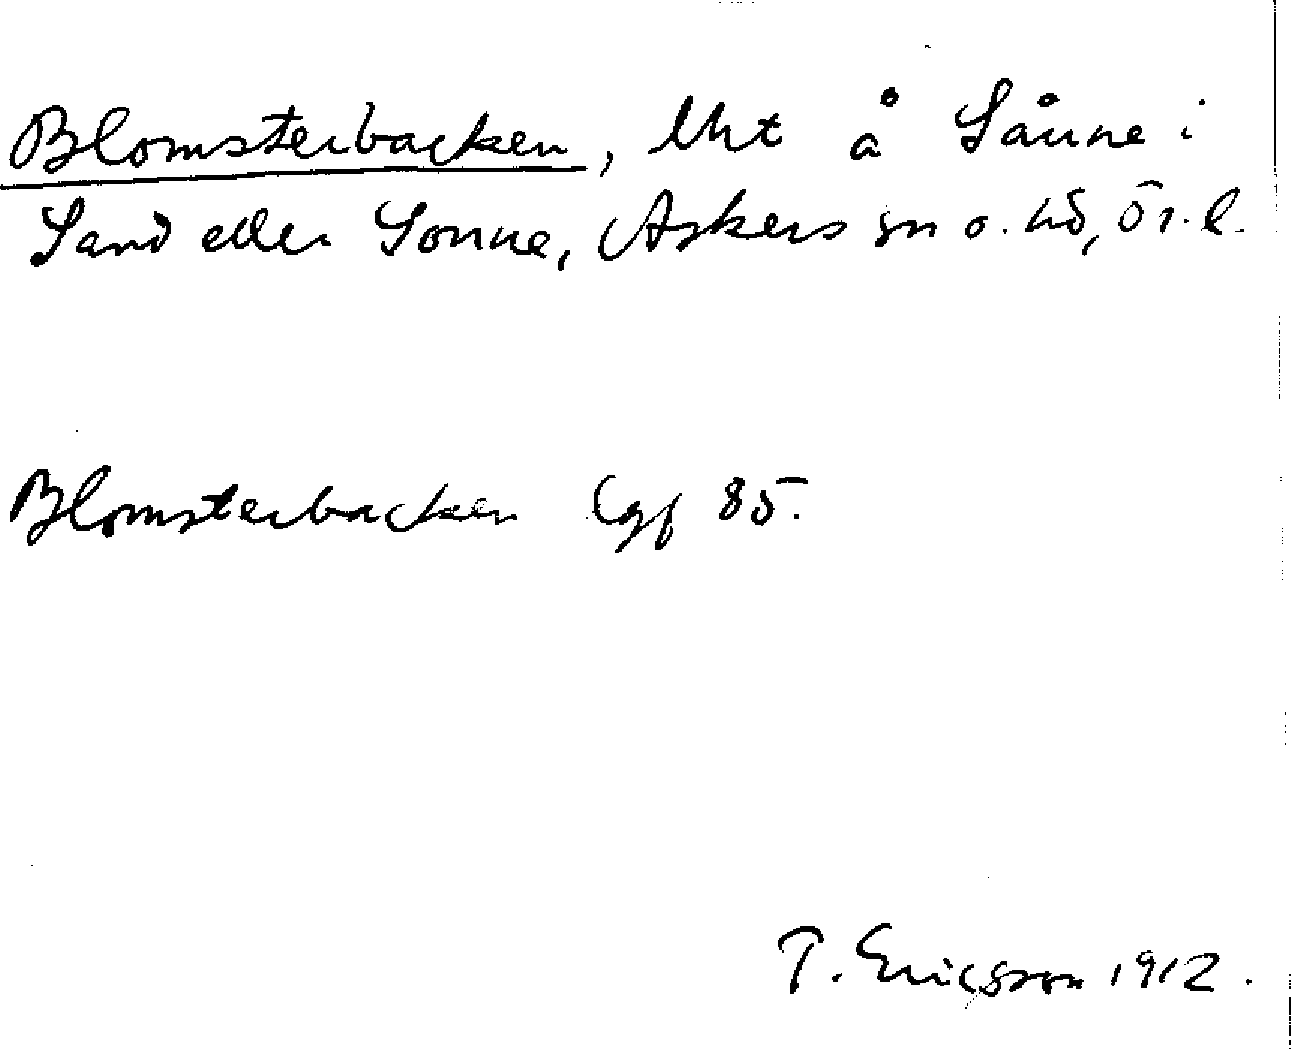 Blomsterbacken, lht å Sånne i
Sand eller Sonne, Askers sn o. hd, Ör. l.
Blomsterbacken Lgf 85.
T. Ericsson 1912.